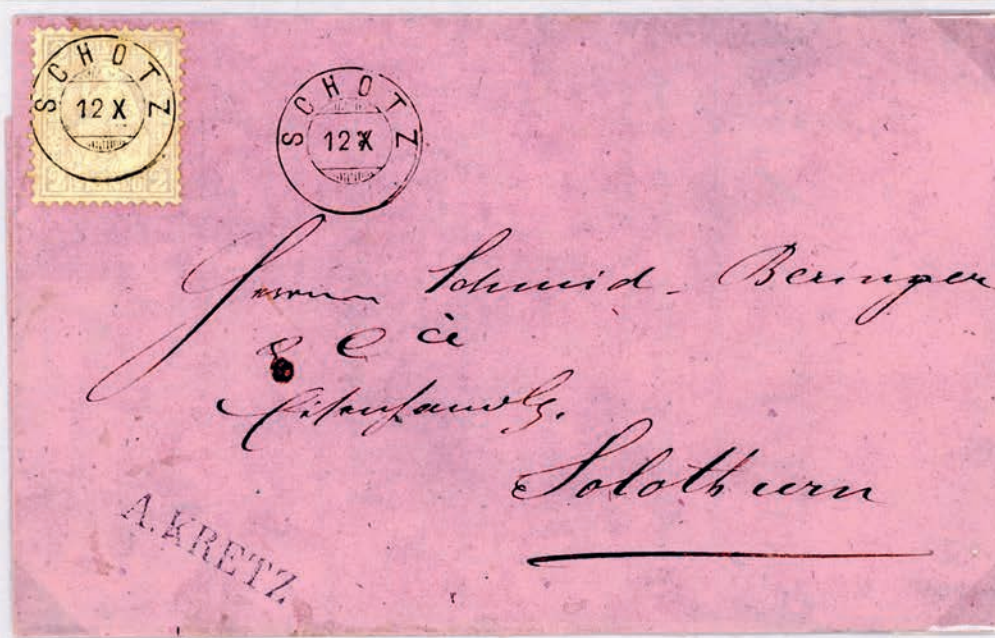 SCHOTZ
12 X
SCHOTZ
12 X
Herren Schmid-Beringer
& Cie
Eisenhandlg.
Solothurn
A. KRETZ